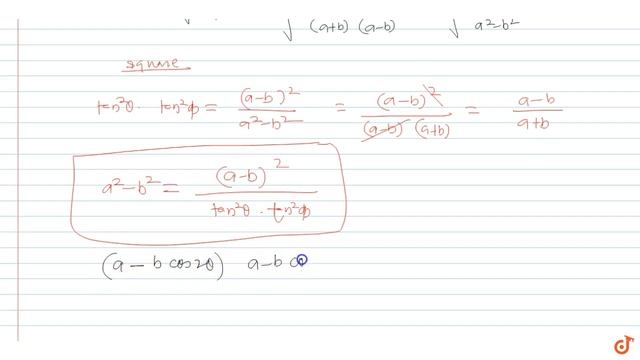 √ (a+b) (a-b) √ a²-b²
square
tan²θ · tan²φ = (a-b)² / a²-b² = (a-b)² / (a-b) (a+b) = a-b / a+b
a²-b² = (a-b)² / tan²θ · tan²φ
(a - b cos2θ) a-b co